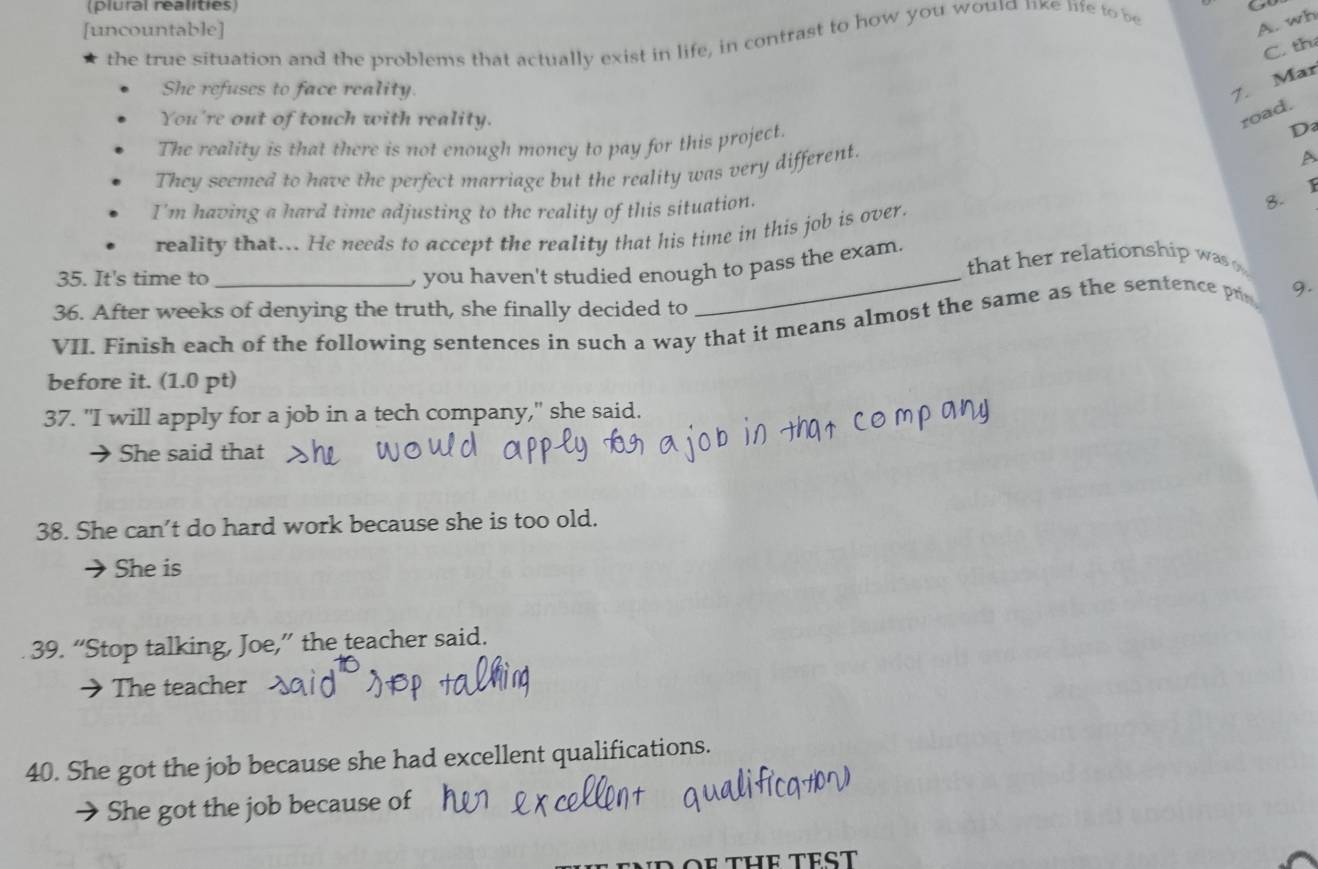 (plural realities)
[uncountable]
★ the true situation and the problems that actually exist in life, in contrast to how you would like life to be
• She refuses to face reality.
• You're out of touch with reality.
• The reality is that there is not enough money to pay for this project.
• They seemed to have the perfect marriage but the reality was very different.
• I'm having a hard time adjusting to the reality of this situation.
• reality that... He needs to accept the reality that his time in this job is over.
35. It's time to ______________, you haven't studied enough to pass the exam.
36. After weeks of denying the truth, she finally decided to ______________ that her relationship was
VII. Finish each of the following sentences in such a way that it means almost the same as the sentence
before it. (1.0 pt)
37. "I will apply for a job in a tech company," she said.
→ She said that she would apply for a job in that company
38. She can't do hard work because she is too old.
→ She is
39. "Stop talking, Joe," the teacher said.
→ The teacher said to stop talking
40. She got the job because she had excellent qualifications.
→ She got the job because of her excellent qualification
OF THE TEST
A. wh
C. tha
7. Mar
road.
Da
A
8.
9.